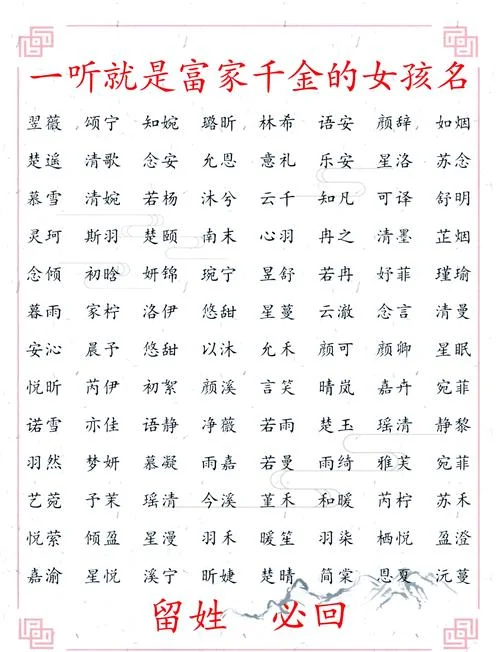 一听就是富家千金的女孩名
翌薇 颂宁 知婉 璐昕 林希 语安 颜辞 如烟
楚遥 清歌 念安 允恩 意礼 乐安 星洛 苏念
慕雪 清婉 若杨 沐兮 云千 知凡 可译 舒明
灵珂 斯羽 楚颐 南末 心羽 冉之 清墨 芷烟
念倾 初晗 妍锦 琬宁 昱舒 若冉 妤菲 瑾瑜
暮雨 家柠 洛伊 悠甜 星蔓 云澈 念言 清曼
安沁 晨予 悠甜 以沐 允禾 颜可 颜卿 星眠
悦昕 芮伊 初絮 颜溪 言笑 晴岚 嘉卉 宛菲
诺雪 亦佳 语静 净薇 若雨 楚玉 瑶清 静黎
羽然 梦妍 慕凝 雨嘉 若曼 雨绮 雅芙 宛菲
艺菀 予茉 瑶清 今溪 堇禾 和暖 芮柠 苏禾
悦萦 倾盈 星漫 羽禾 暖笙 羽柒 栖悦 盈澄
嘉渝 星悦 溪宁 昕婕 楚晴 简棠 恩夏 沅蔓
留姓 必回